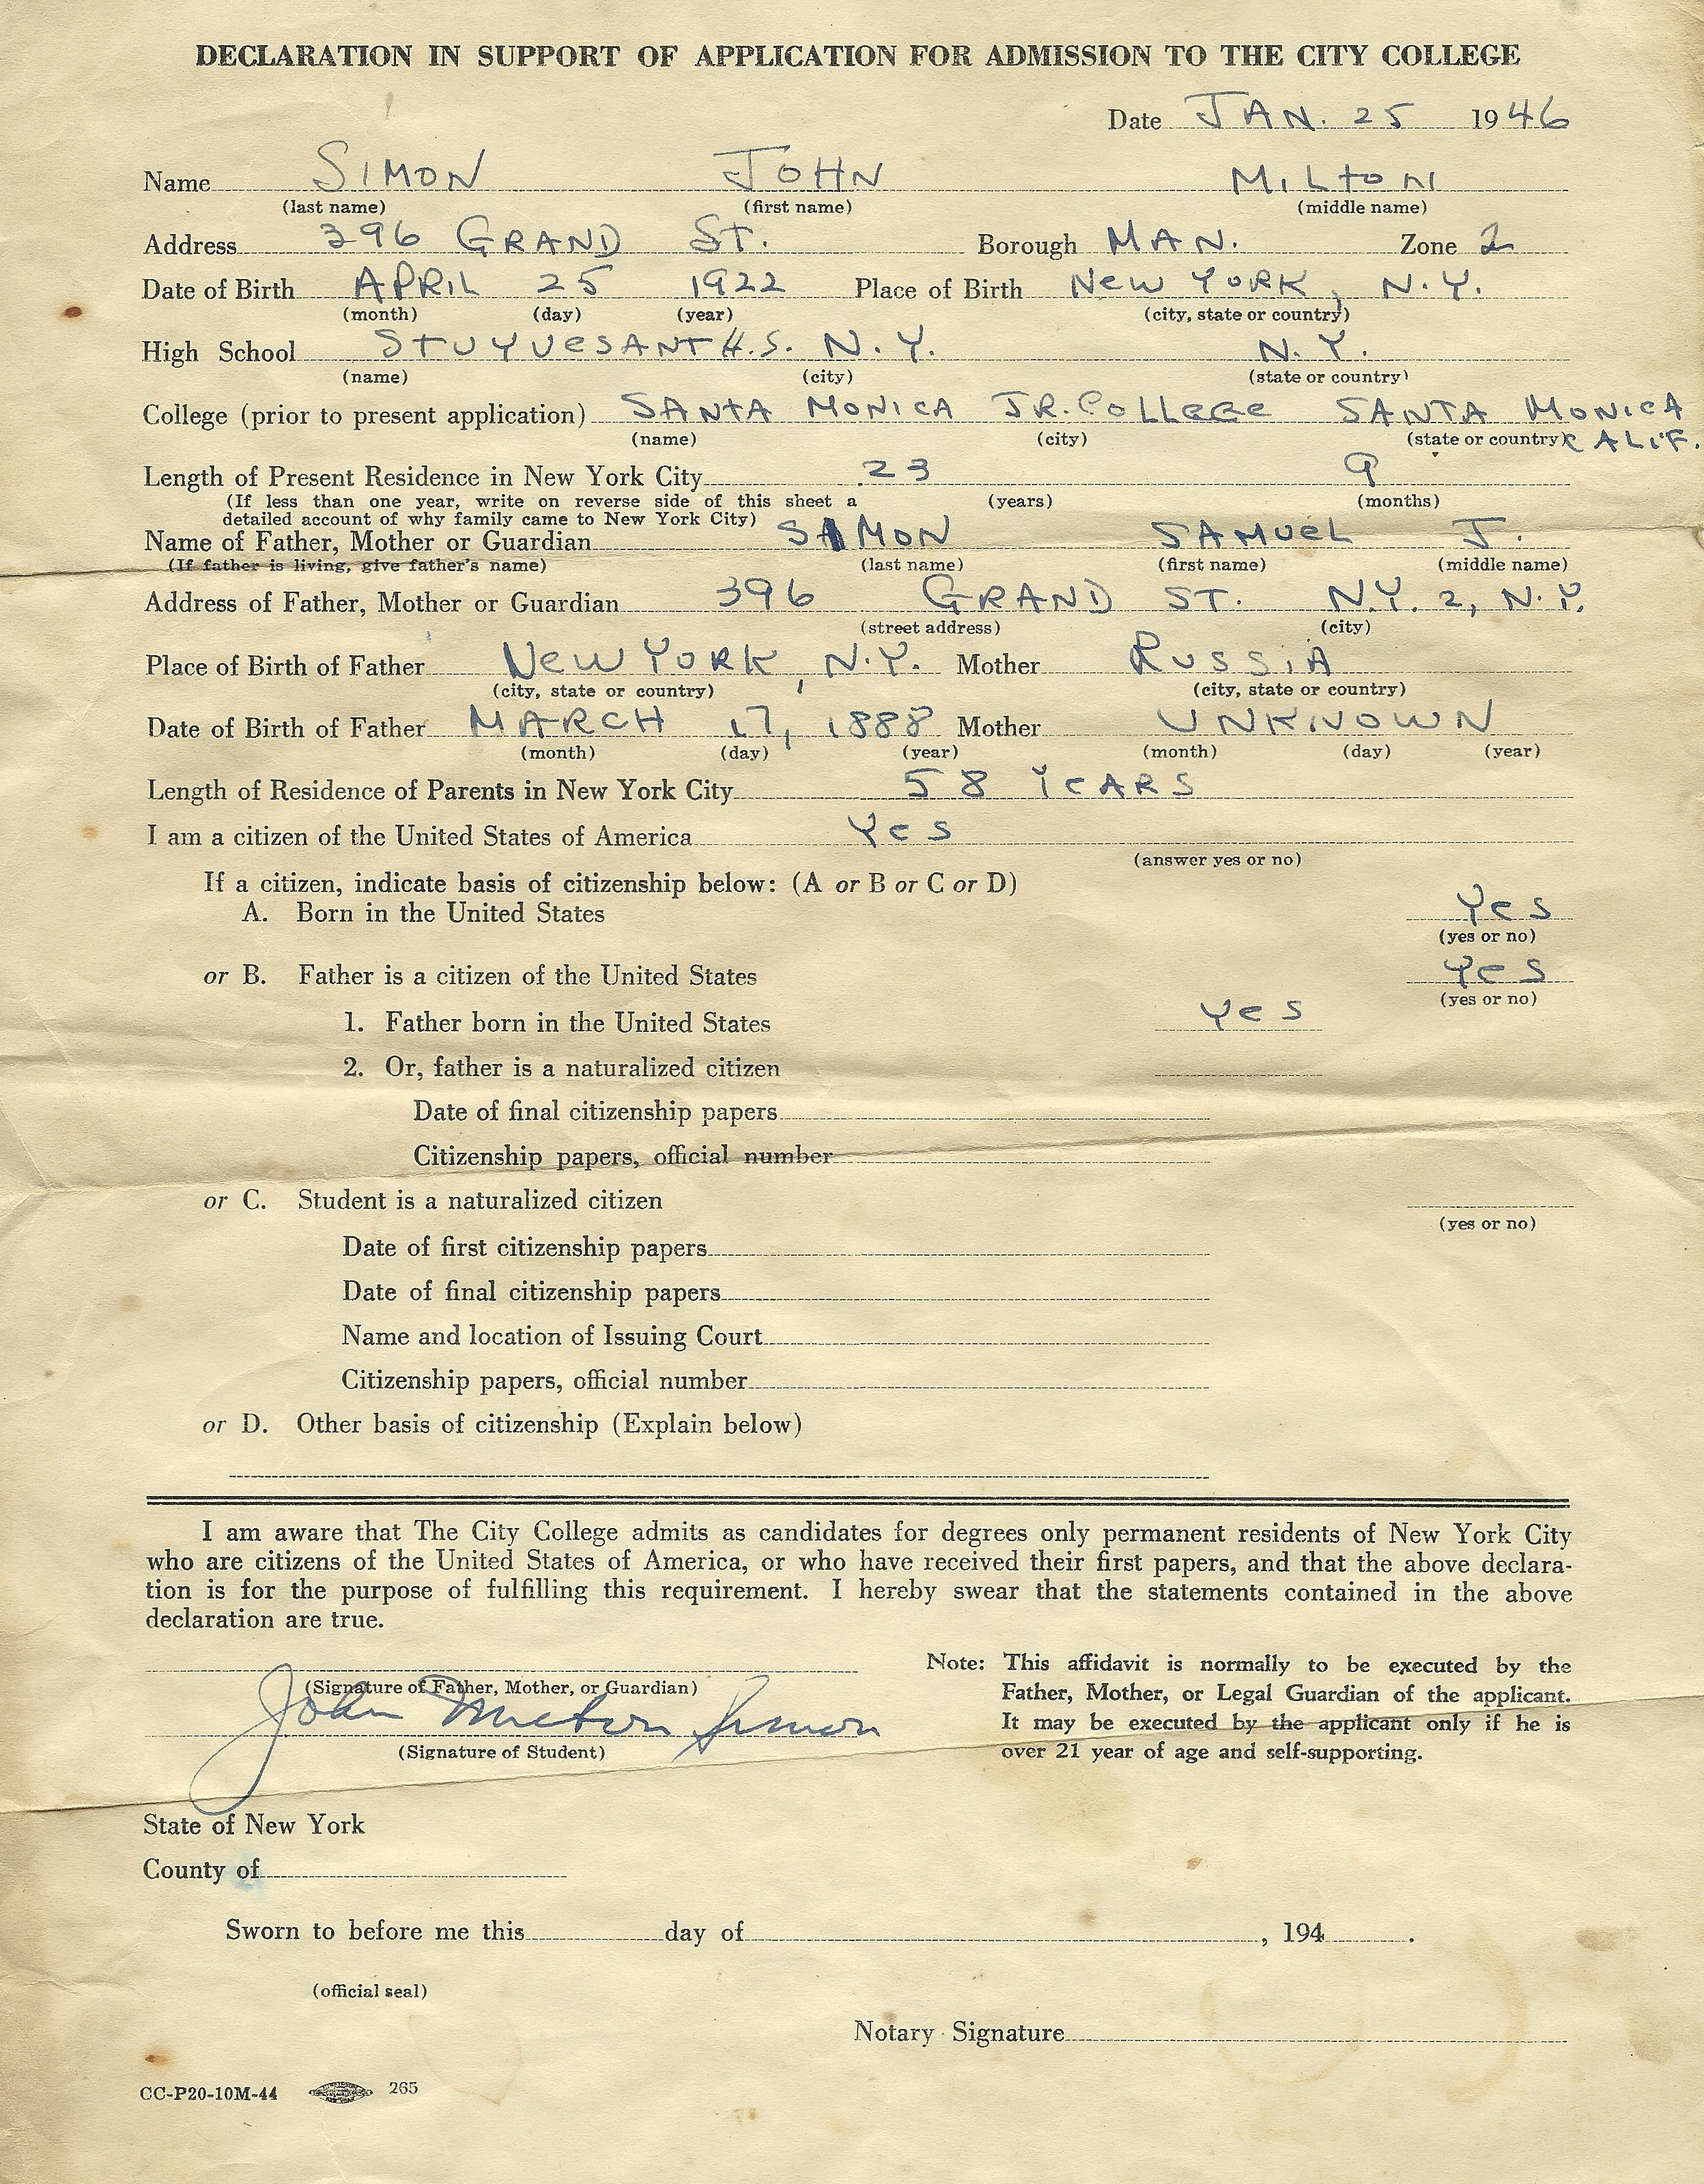 DECLARATION IN SUPPORT OF APPLICATION FOR ADMISSION TO THE CITY COLLEGE
Date JAN. 25 1946
Name SIMON JOHN MILTON
(last name) (first name) (middle name)
Address 396 GRAND ST. Borough MAN. Zone 2
Date of Birth APRIL 25 1922 Place of Birth NEW YORK, N.Y.
(month) (day) (year) (city, state or country)
High School STUYVESANT H.S. N.Y. N.Y.
(name) (city) (state or country)
College (prior to present application) SANTA MONICA JR. COLLEGE SANTA MONICA
(name) (city) (state or country) CALIF.
Length of Present Residence in New York City 23 9
(If less than one year, write on reverse side of this sheet a (years) (months)
detailed account of why family came to New York City)
Name of Father, Mother or Guardian SIMON SAMUEL J.
(If father is living, give father's name) (last name) (first name) (middle name)
Address of Father, Mother or Guardian 396 GRAND ST. N.Y. 2, N.Y.
(street address) (city)
Place of Birth of Father NEW YORK, N.Y. Mother RUSSIA
(city, state or country) (city, state or country)
Date of Birth of Father MARCH 17, 1888 Mother UNKNOWN
(month) (day) (year) (month) (day) (year)
Length of Residence of Parents in New York City 58 YEARS
I am a citizen of the United States of America YES
(answer yes or no)
If a citizen, indicate basis of citizenship below: (A or B or C or D)
A. Born in the United States YES
(yes or no)
or B. Father is a citizen of the United States YES
(yes or no)
1. Father born in the United States YES
2. Or, father is a naturalized citizen
Date of final citizenship papers
Citizenship papers, official number
or C. Student is a naturalized citizen
(yes or no)
Date of first citizenship papers
Date of final citizenship papers
Name and location of Issuing Court
Citizenship papers, official number
or D. Other basis of citizenship (Explain below)
I am aware that The City College admits as candidates for degrees only permanent residents of New York City
who are citizens of the United States of America, or who have received their first papers, and that the above declara-
tion is for the purpose of fulfilling this requirement. I hereby swear that the statements contained in the above
declaration are true.
(Signature of Father, Mother, or Guardian)
John Milton Simon
(Signature of Student)
Note: This affidavit is normally to be executed by the
Father, Mother, or Legal Guardian of the applicant.
It may be executed by the applicant only if he is
over 21 year of age and self-supporting.
State of New York
County of
Sworn to before me this day of , 194 .
(official seal)
Notary Signature
CC-P20-10M-44 265